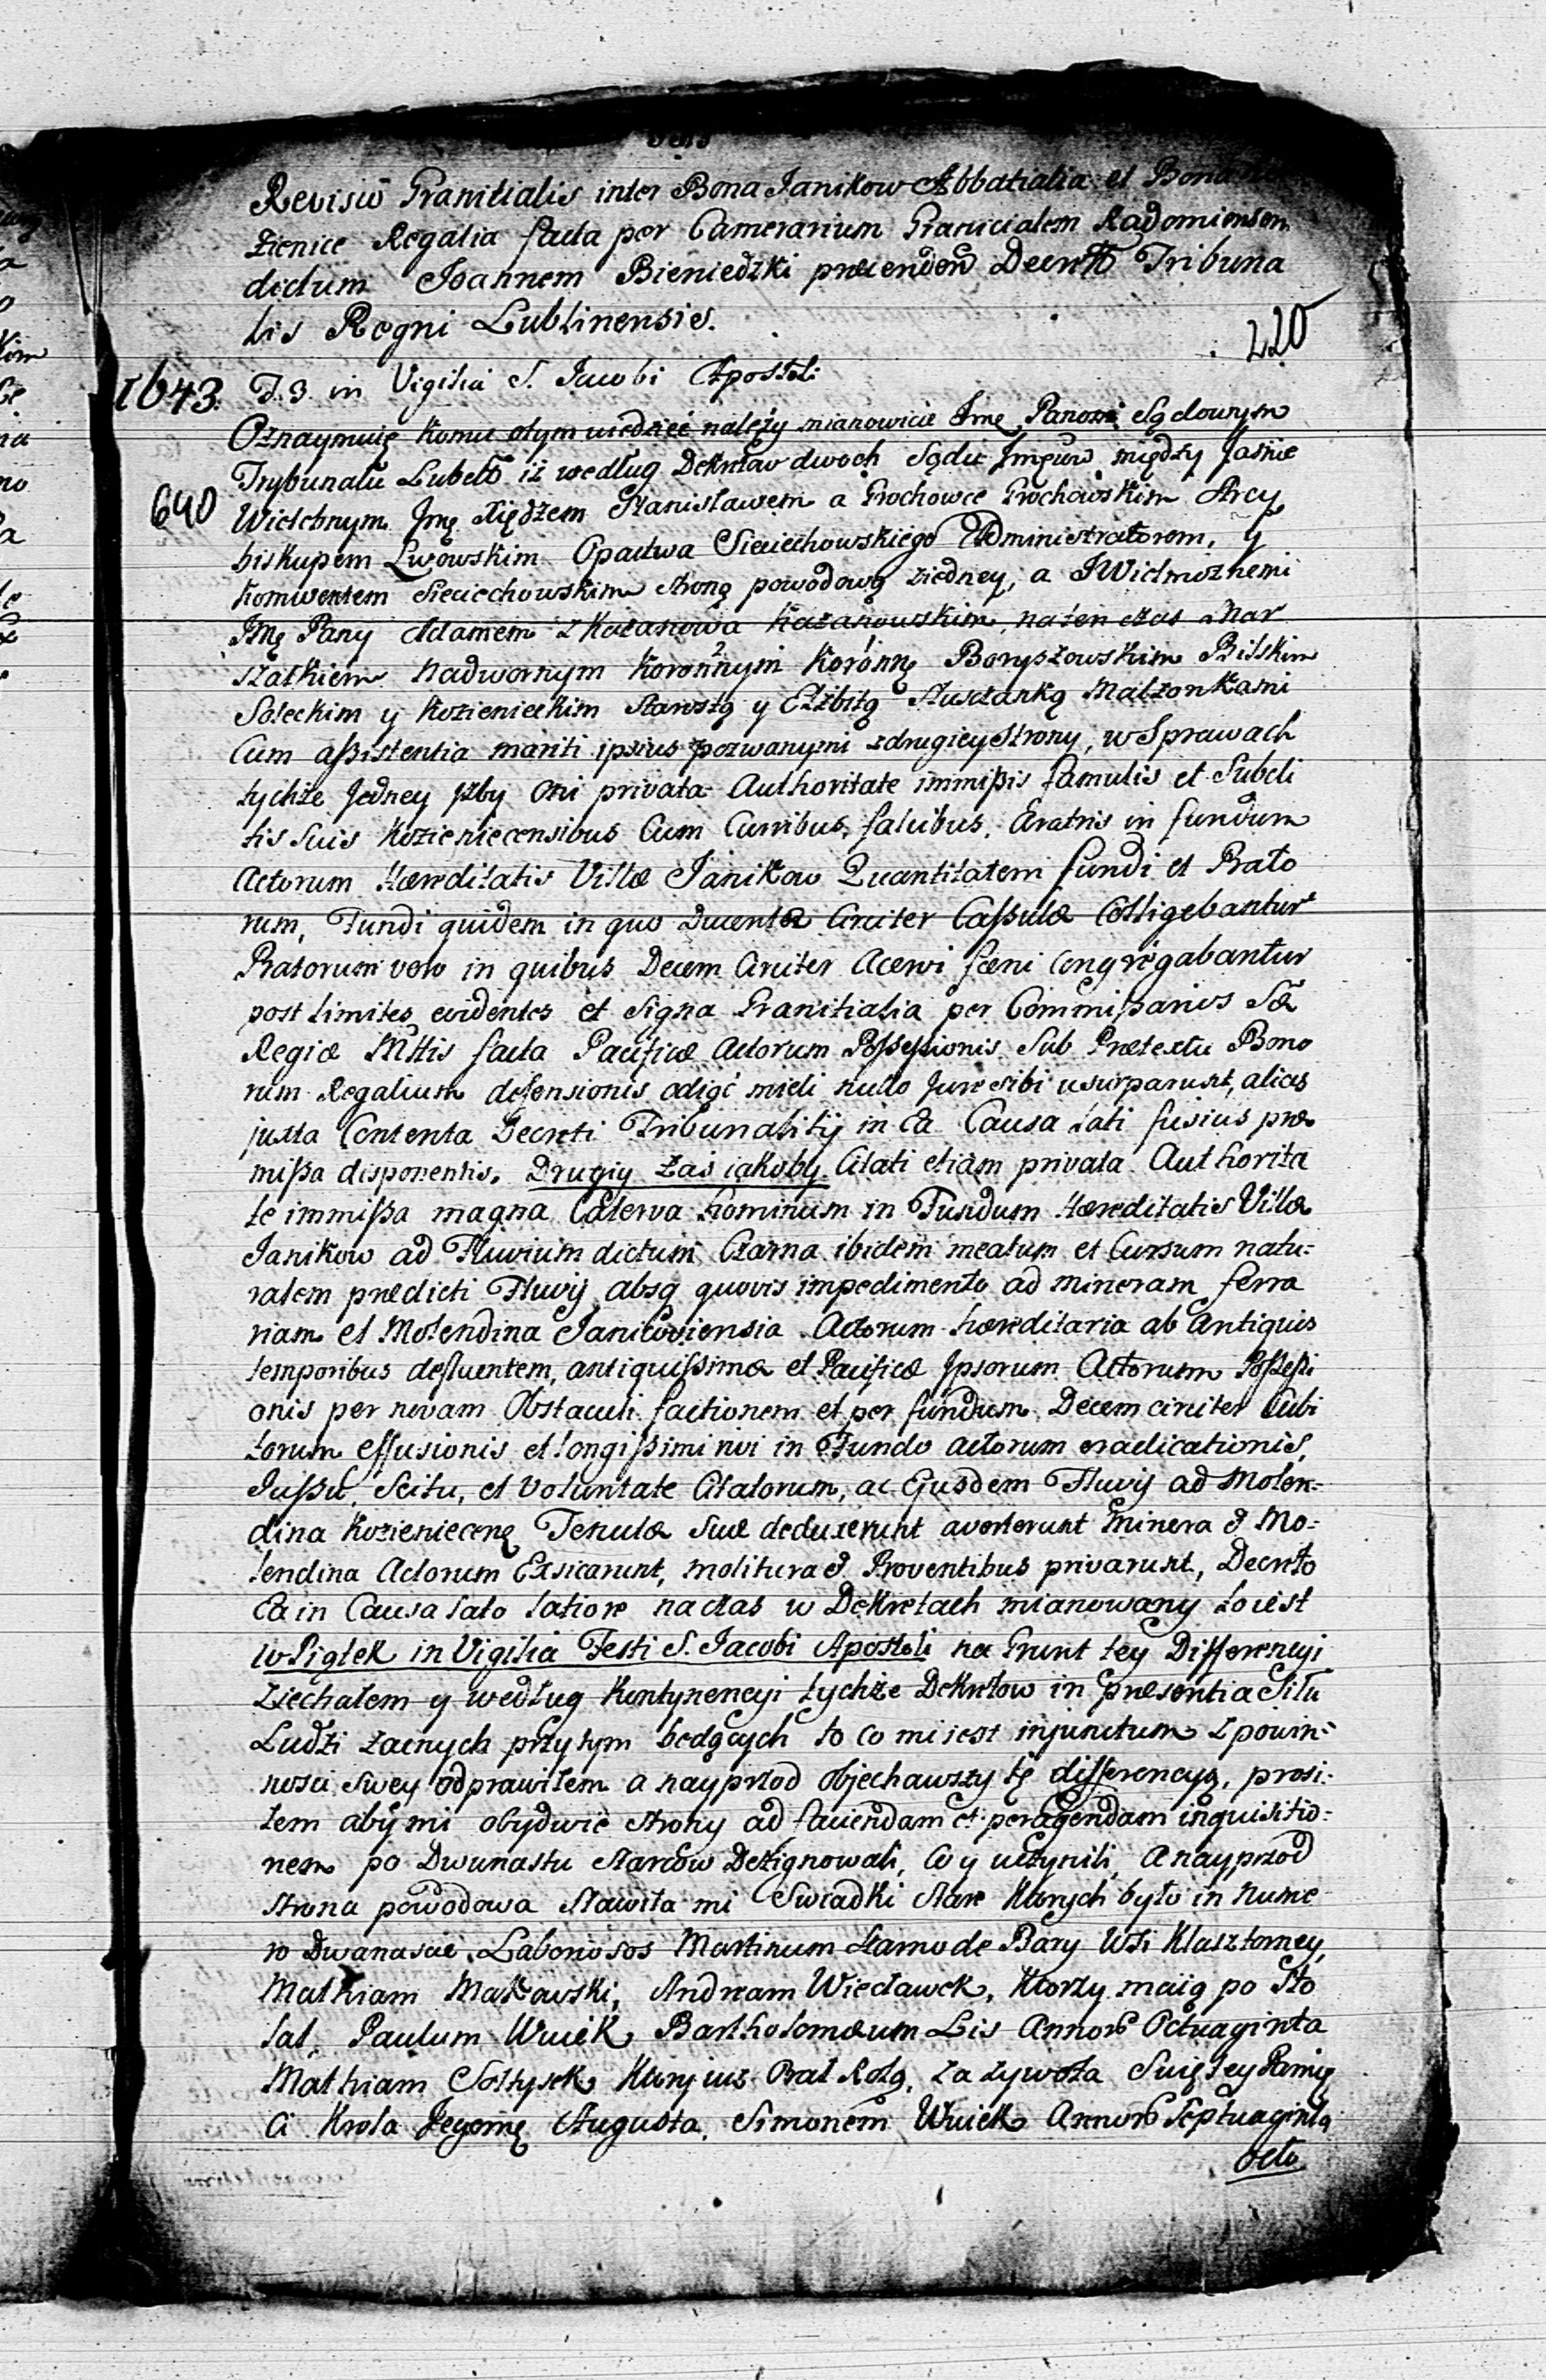 Revisio Granitialis inter Bona Janikow Abbatialia et Bona
zienice Regalia facta per Camerarium Granicialem Radomiensem
dictum Joannem Bieniedzki præcendend Decrett Tribuna
lis Regni Lublinensis.
220
1643. F. 3. in Vigilia S. Jacobi Apostoli
Oznaymuię komu otym wiedzieć należy mianowicie Jmę Panom Sądowym
Trybunału Lubelo iż według Dekretow dwoch Sądu Jmęuw między Jasnie
640
Wielebnym Jmę Xiędzem Stanisławem a Grochowce Grochowskim Arcy
biskupem Lwowskim Opactwa Sieciechowskiego Administratorem, y
Komwentem Sieciechowskim stroną powodową ziedney, a JWielmoznemi
Jmę Pany Adamem z Kazanowa Kazanowskim, naten czas Mar
szałkiem Nadwornym Koronnym Koronnę Boryszowskim Bilskim
Soleckim y Kozienickim Starostą y Elżbitą Słuszanką Małzonkami
Cum assistentia mariti ipsius pozwanymi zdrugiey Strony, w Sprawach
tychże Jedney jżby Oni privata Authoritate immissis famulis et Subdi
tis suis Kozieniecensibus Cum Curribus, falcibus, Aratris in fundum
Actorum Hæreditatis Villæ Janikow Quantitatem fundi et Prato
rum, Fundi quidem in quo Ducentæ Circiter Cassulæ Colligebantur
Pratorum vero in quibus Decem Circiter Acervi fæni Congregabantur
post limites evidentes et Signa Granitialia per Commissarios Sæ
Regiæ Mttis facta Pacificæ Actorum Possessionis Sub Prætextu Bono
rum Regalium defensionis odiąć mieli nullo Jure sibi usurparunt, alias
juxta Contenta Decreti Tribunalitij in ea Causa lati fusius præ
missa disponentis. Drugiy zaś iakoby Citati etiam privata Authorita
te immissa magna Caterva hominum in Fundum Hæreditatis Villæ
Janikow ad Fluvium dictum Czarna ibidem meatum et Cursum natu:
ralem prædicti Fluvij absq quovis impedimento ad mineram ferra
riam et Molendina Janicoviensia Actorum hæreditaria ab Antiquis
temporibus defluentem, antiquissimæ et Pacificæ Jpsorum Actorum Possessi
onis per novam Obstaculi factionem et per fundum Decem circiter Cubi
torum effusionis et longissimi rivi in Fundo actorum eradicationis,
Jussu, Scitu, et Voluntate Citatorum, ac Ejusdem Fluvij ad Molen:
dina Kozieniecenę Tenutæ suæ deduxerunt averterunt Minera & Mo:
lendina Actorum Exsicarunt, molitura & Proventibus privarunt, Decreto
Ea in Causa lato latiore naczas w Dekretach mianowany to iest
w Piątek in Vigilia Festi S. Jacobi Apostoli na Grunt tey Differencyi
Ziechałem y według Kontynencyi tychże Dekretow in præsentia Siłu
Ludzi zacnych przytym bedących to co mi iest injunctum z powin:
nosci swey odprawiłem a nayprzod Objechawszy tę differencyą, prosi:
łem aby mi obydwie strony ad faciendam et peragendam inquisitio:
nem po Dwunastu starcow Dezignowali, Co y uczynili, A nayprzod
strona powodowa Stawiła mi Swiadki stare Ktorych było in Nume
ro Dwanascie, Laboriosos Martinum Harno de Bary Wsi Klasztorney,
Mathiam Makowski, Andream Więcławek, Ktorzy maią po Sto
lat, Paulum Wuiek, Bartholomæum Lis Annorũ Octuaginta
Mathiam Sołtysek Ktory iuz Brał Rolą, za zywota Swiętey Pamię
ci Krola Jegomę Augusta, Simonem Wuiek Annorũ Septuaginta
octo